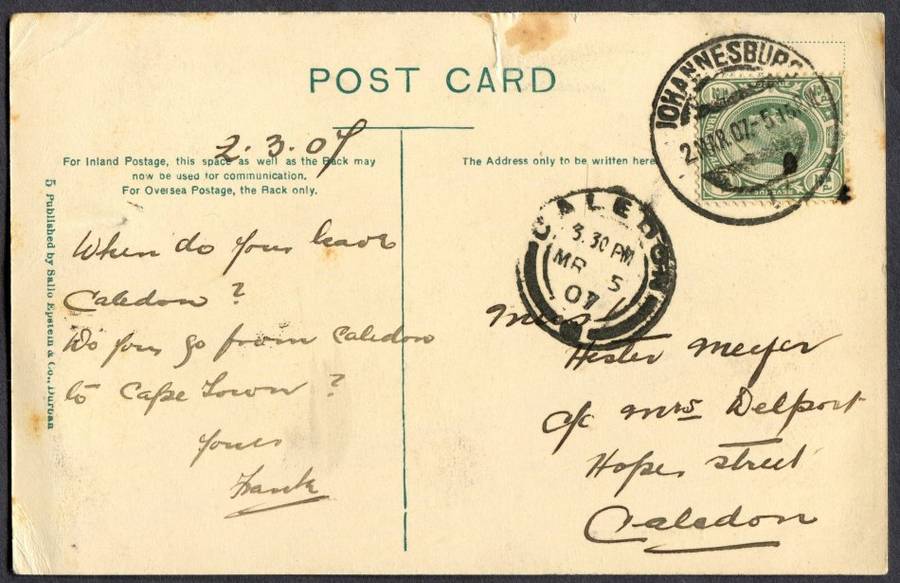 POST CARD
2.3.07
For Inland Postage, this space as well as the Back may
now be used for communication.
For Oversea Postage, the Back only.
The Address only to be written here
5 Published by Sallo Epstein & Co., Durban
JOHANNESBURG
2 MAR 07 - 5.15
CALEDON
3.30 PM
MR 5
07
When do you leave
Caledon ?
Do you go from Caledon
to Cape Town ?
Yours
Frank
Miss
Hester Meyer
c/o Mrs Delport
Hope street
Caledon